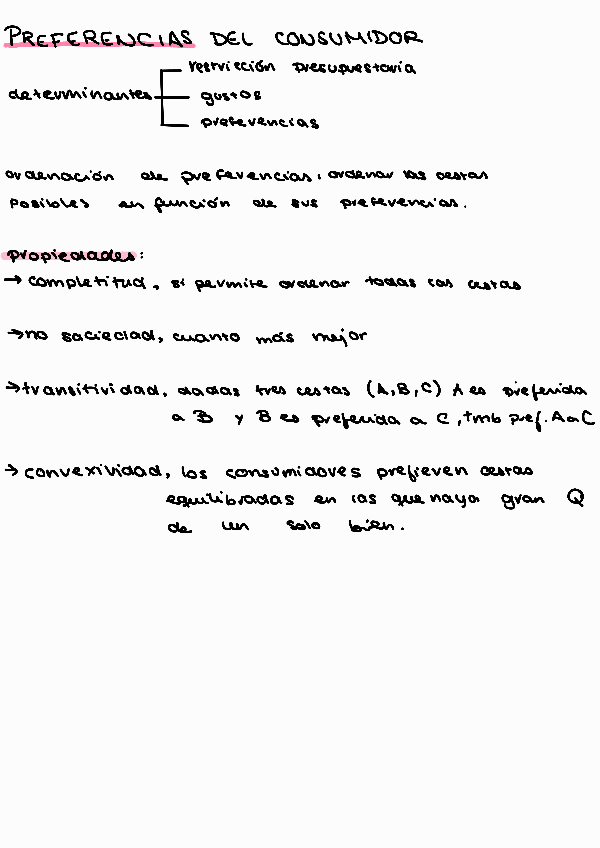 PREFERENCIAS DEL CONSUMIDOR
restricción presupuestaria
determinantes gustos
preferencias
ordenación de preferencias, ordenar las cestas
posibles en función de sus preferencias.
propiedades:
→ completitud, si permite ordenar todas las cestas
→ no saciedad, cuanto más mejor
→ transitividad, dadas tres cestas (A,B,C) A es preferida
a B y B es preferida a C, tmb pref. A a C
→ convexividad, los consumidores prefieren cestas
equilibradas en las que haya gran Q
de un solo bien.